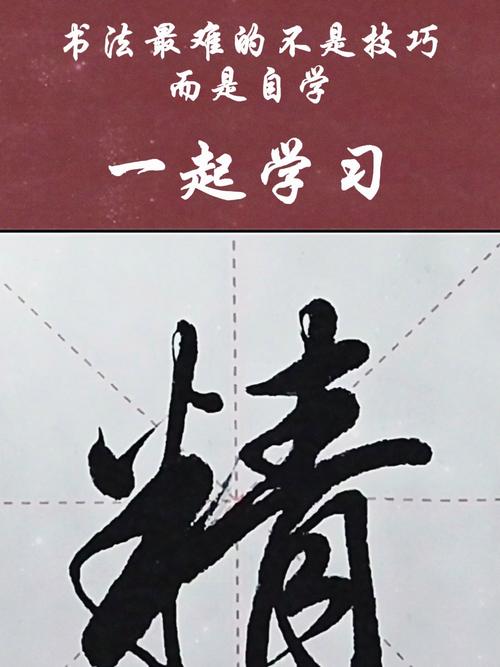 书法最难的不是技巧
而是自学
一起学习
精